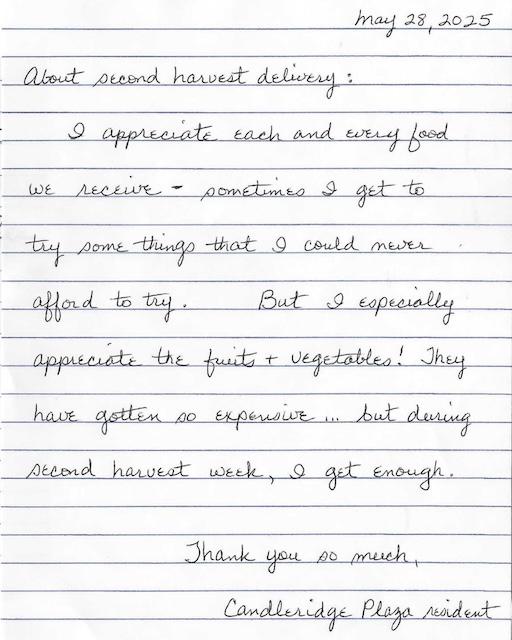 May 28, 2025
About second harvest delivery:
I appreciate each and every food
we receive - sometimes I get to
try some things that I could never
afford to try. But I especially
appreciate the fruits + vegetables! They
have gotten so expensive ... but during
second harvest week, I get enough.
Thank you so much,
Candleridge Plaza resident